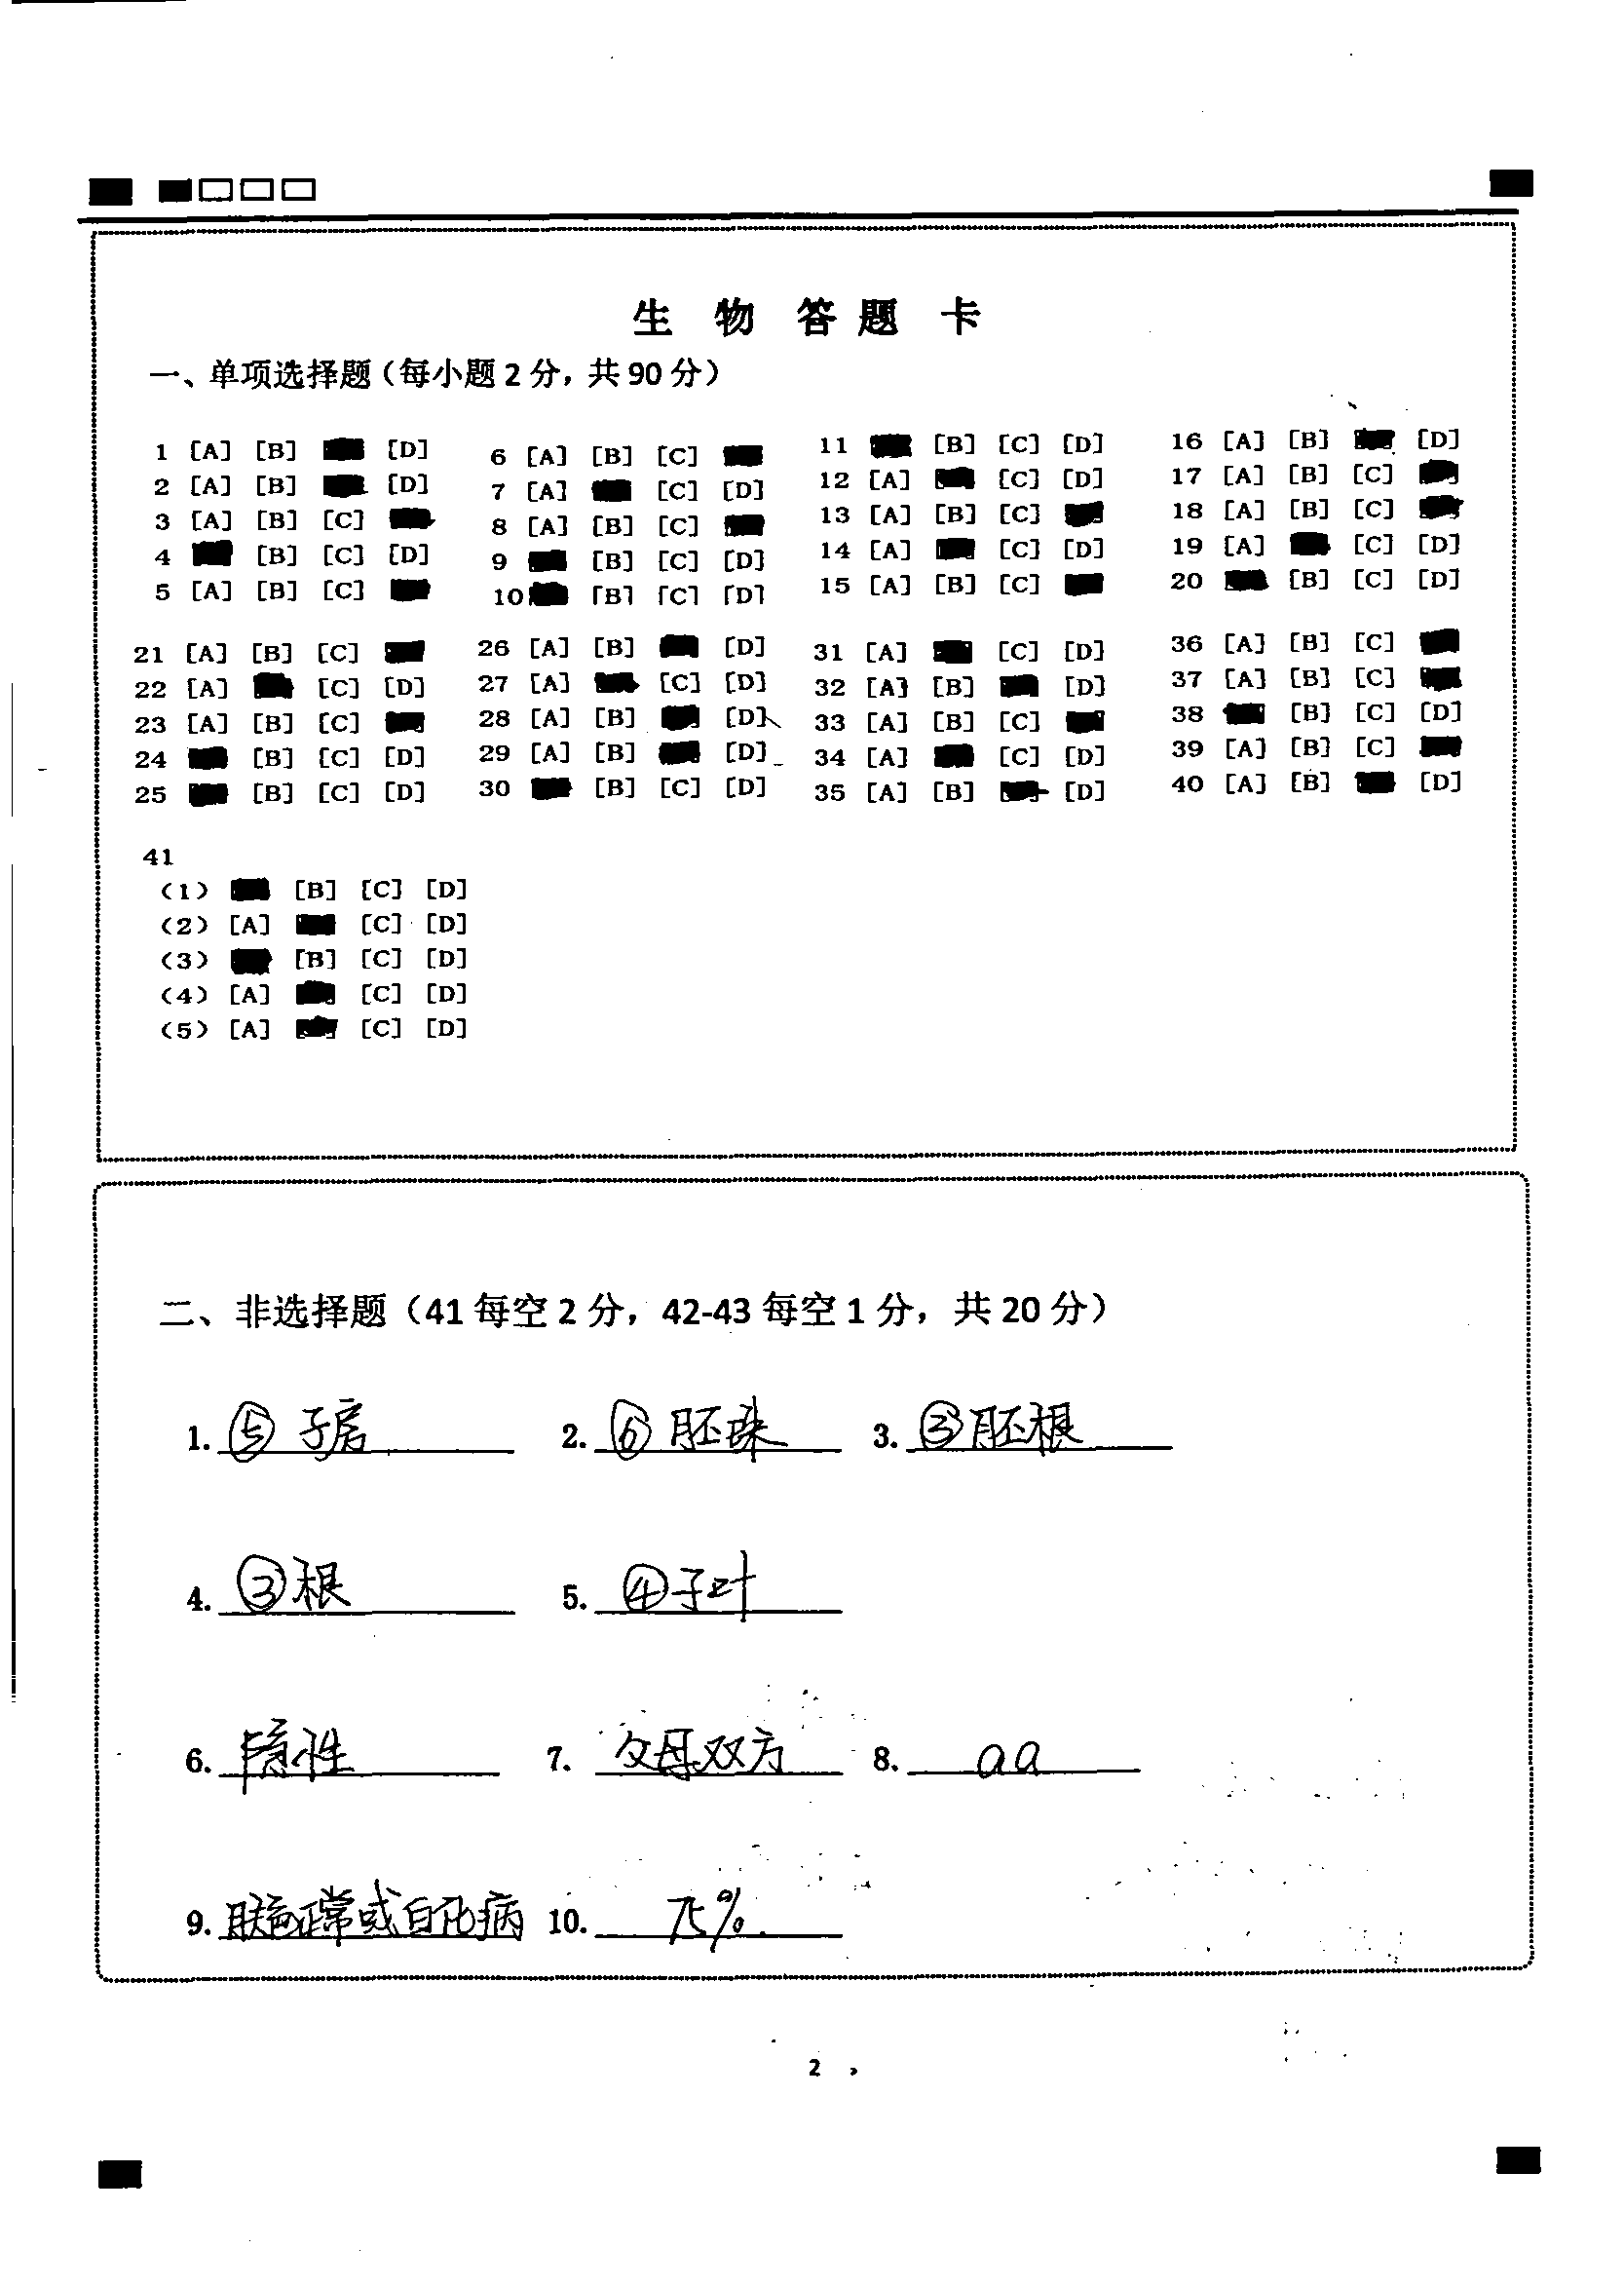 生 物 答 题 卡
一、单项选择题（每小题 2 分，共 90 分）
1 [A] [B] [D]
2 [A] [B] [D]
3 [A] [B] [C]
4 [B] [C] [D]
5 [A] [B] [C]
6 [A] [B] [C]
7 [A] [C] [D]
8 [A] [B] [C]
9 [B] [C] [D]
10 [B] [C] [D]
11 [B] [C] [D]
12 [A] [C] [D]
13 [A] [B] [C]
14 [A] [C] [D]
15 [A] [B] [C]
16 [A] [B] [D]
17 [A] [B] [C]
18 [A] [B] [C]
19 [A] [C] [D]
20 [B] [C] [D]
21 [A] [B] [C]
22 [A] [C] [D]
23 [A] [B] [C]
24 [B] [C] [D]
25 [B] [C] [D]
26 [A] [B] [D]
27 [A] [C] [D]
28 [A] [B] [D]
29 [A] [B] [D]
30 [B] [C] [D]
31 [A] [C] [D]
32 [A] [B] [D]
33 [A] [B] [C]
34 [A] [C] [D]
35 [A] [B] [D]
36 [A] [B] [C]
37 [A] [B] [C]
38 [B] [C] [D]
39 [A] [B] [C]
40 [A] [B] [D]
41
(1) [B] [C] [D]
(2) [A] [C] [D]
(3) [B] [C] [D]
(4) [A] [C] [D]
(5) [A] [C] [D]
二、非选择题（41 每空 2 分，42-43 每空 1 分，共 20 分）
1. ⑤子房 2. ⑥胚珠 3. ③胚根
4. ③根 5. ④子叶
6. 隐性 7. 父母双方 8. aa
9. 肤色正常或白化病 10. 75%
2